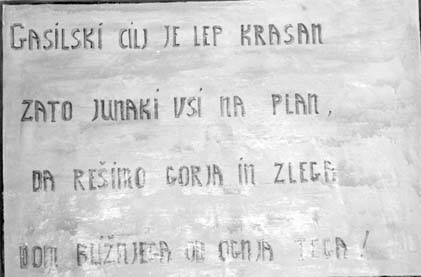 GASILSKI CILJ JE LEP KRASAN
ZATO JUNAKI VSI NA PLAN,
DA REŠIMO GORJA IN ZLEGA
DOM BLIŽNJEGA OD OGNJA TEGA!